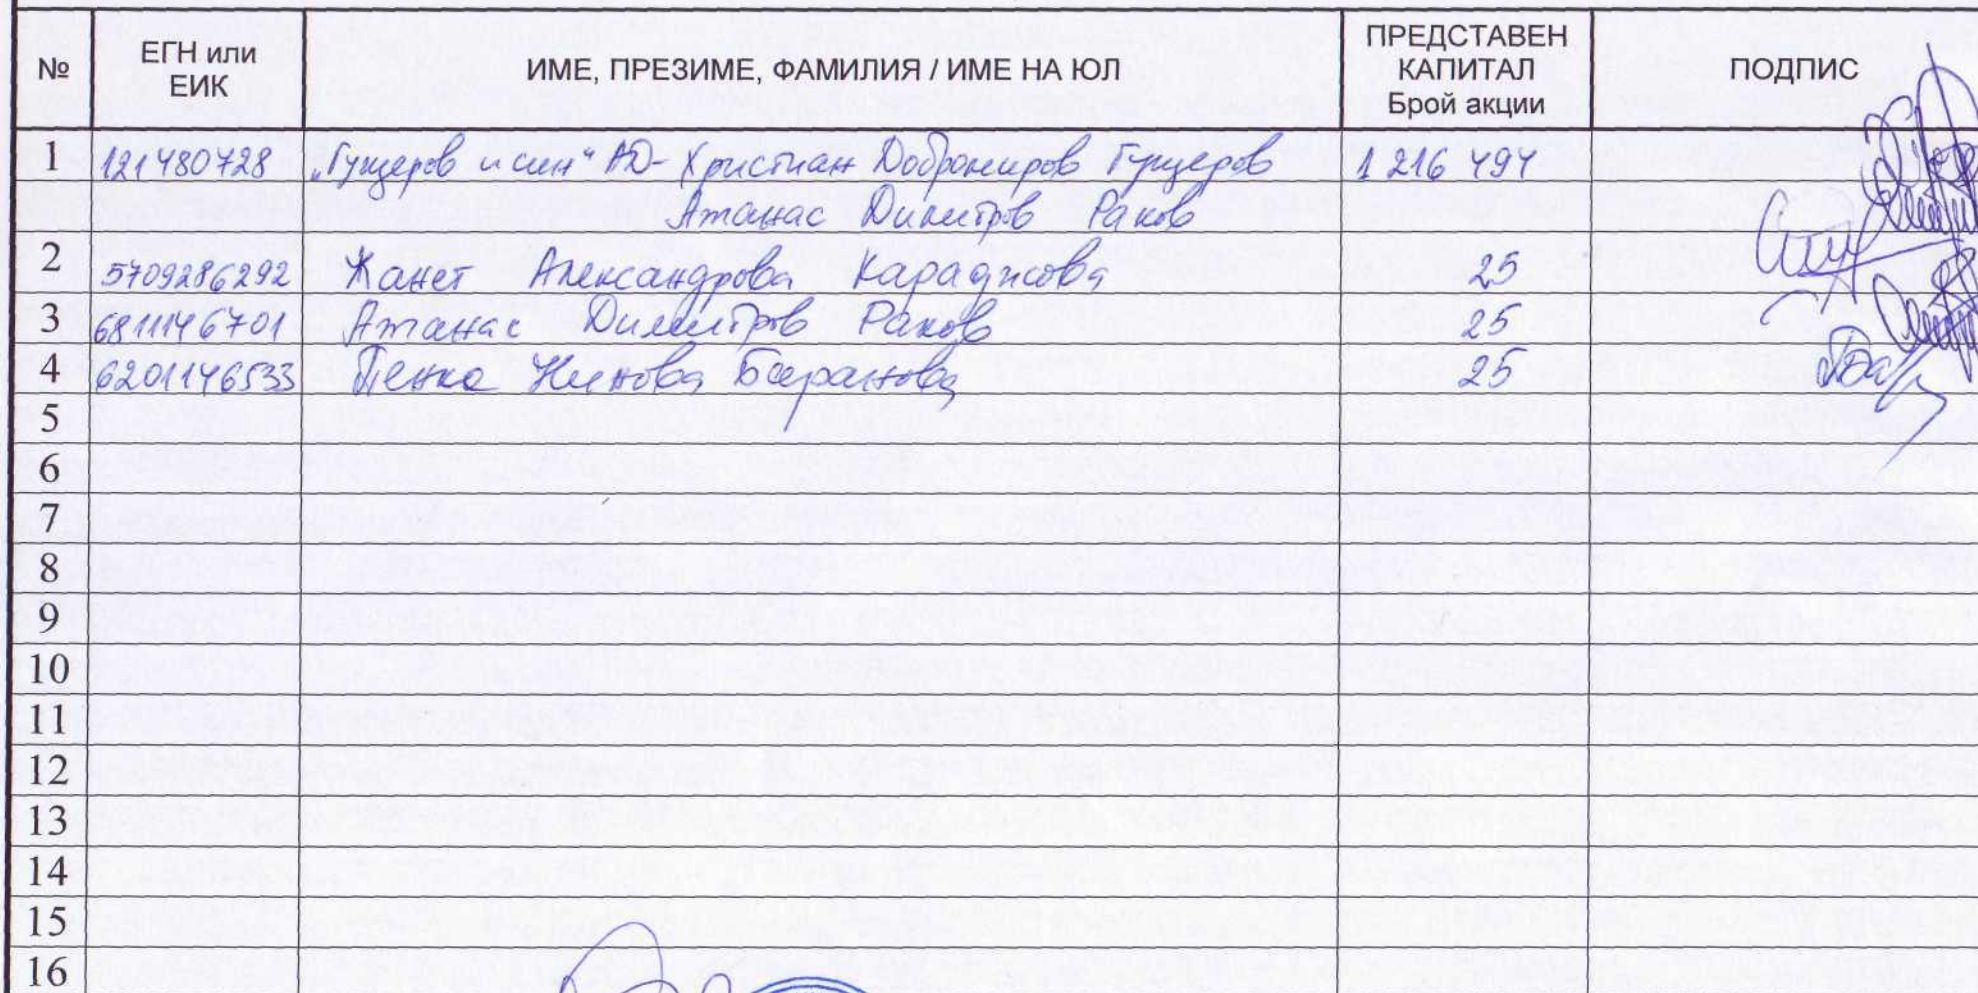 № ЕГН или ЕИК ИМЕ, ПРЕЗИМЕ, ФАМИЛИЯ / ИМЕ НА ЮЛ ПРЕДСТАВЕН КАПИТАЛ Брой акции ПОДПИС
1 121480728 „Гущеров и син" АД - Христиан Добромиров Гущеров 1 216 494
Атанас Димитров Раков
2 5709286292 Жанет Александрова Караджова 25
3 6811146701 Атанас Димитров Раков 25
4 6201146533 Пенка Нинова 25
5
6
7
8
9
10
11
12
13
14
15
16